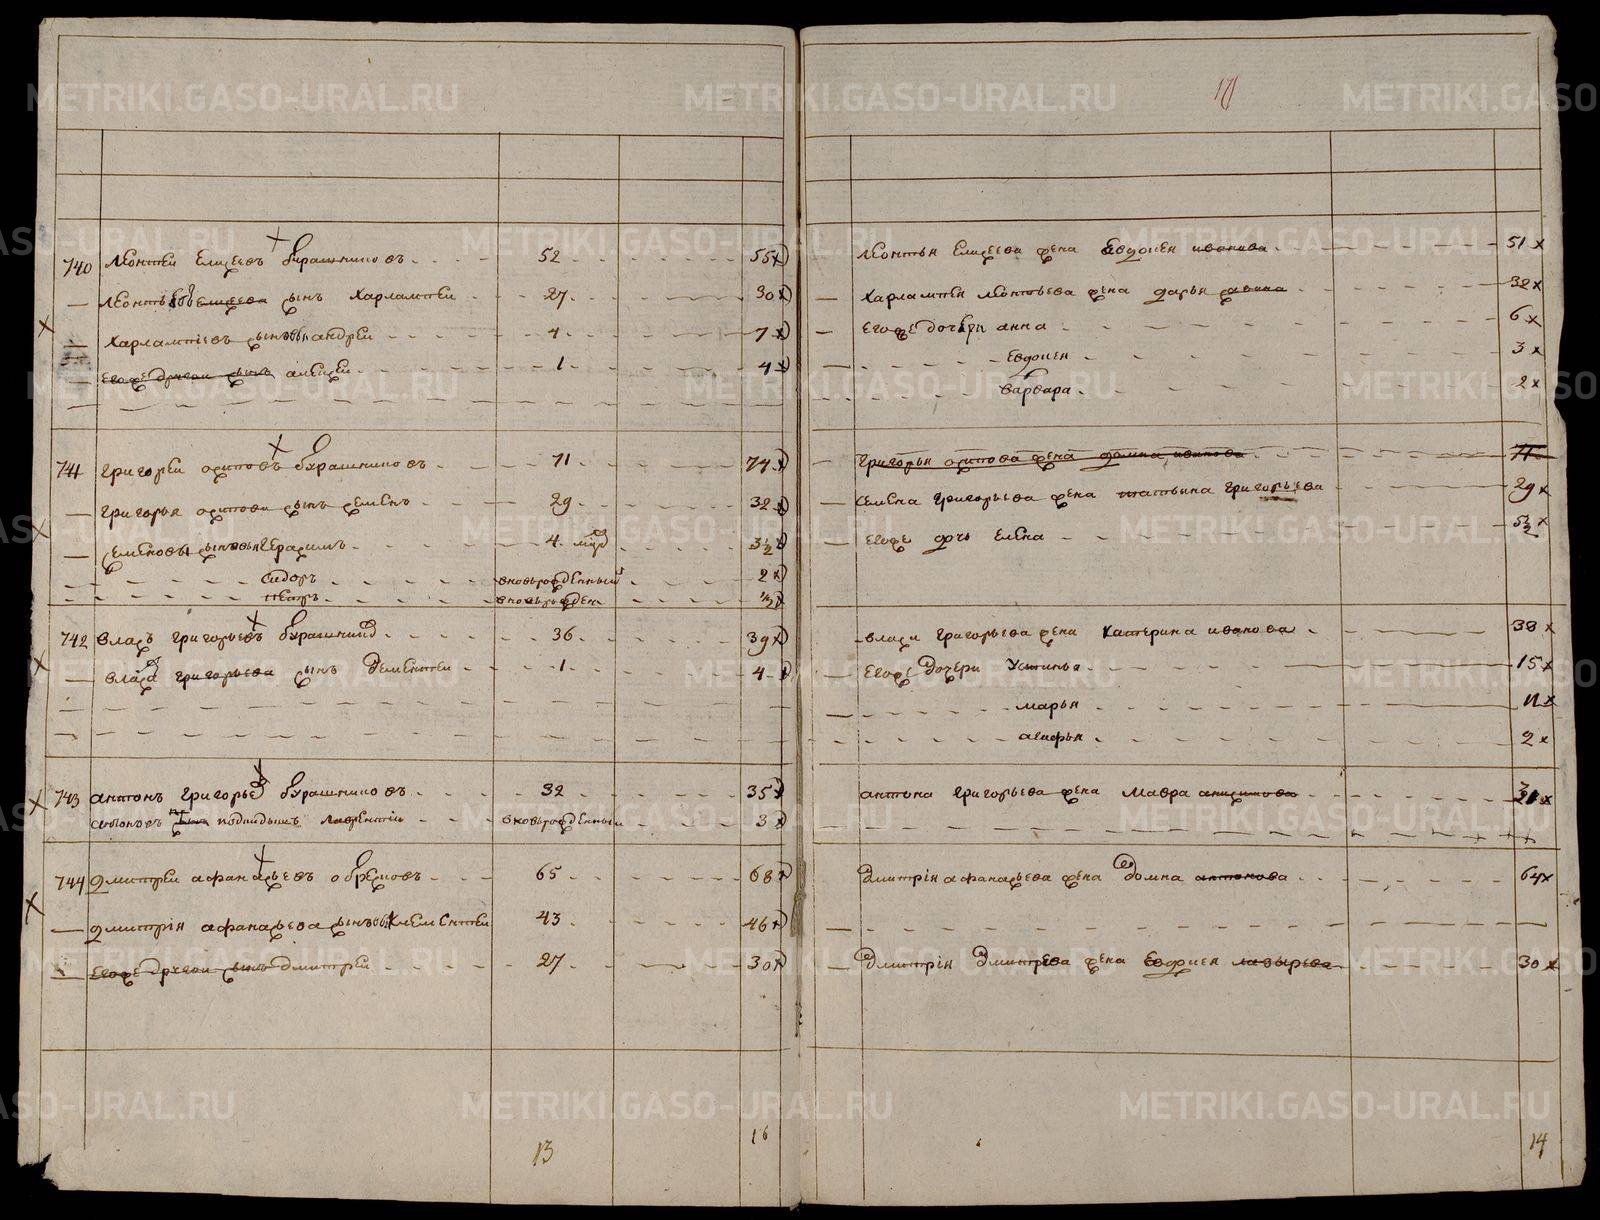 METRIKI.GASO-URAL.RU
17
740 Леонтеи Елисеевъ Бурашниковъ 52 55
Елисеева сынъ Харлампеи 27 30
Харлампиевъ сынъ андреи 4 7
Егоже другои сынъ алексеи 1 4
741 Григореи осиповъ Бурашниковъ 71 74
Григорья осипова сынъ семенъ 29 32
Герасимъ 4 3½
сидоръ вновьрожденный 2
петръ вновьрожден ½
742 власъ григорьевъ 36 39
власа григорьева сынъ Дементеи 1 4
743 антонъ григорьев Бурашниковъ 32 35
подкидышъ лаврентіи вновьрожденныи 3
744 Дмитреи афанасьевъ обресковъ 65 68
дмитрія афанасьева Клементеи 43 46
Егоже другои сынъ Дмитреи 27 30
13 16
леонтья Елисеева жена Евдокея иванова 51
Харлампея леонтьева жена дарья савина 32
Егоже дочери анна 6
Евдокея 3
варвара 2
Григорья осипова жена домна иванова 71
семена Григорьева жена татьяна Григорьева 29
Егоже дочь елена 5½
власа григорьева жена Катерина иванова 38
Егоже Дочери Устинья 15
марья 11
агафья 2
антона григорьева жена мавра
Дмитрія афанасьева жена Домна антонова 64
Дмитрія Дмитрева жена Евдокея лазырева 30
14